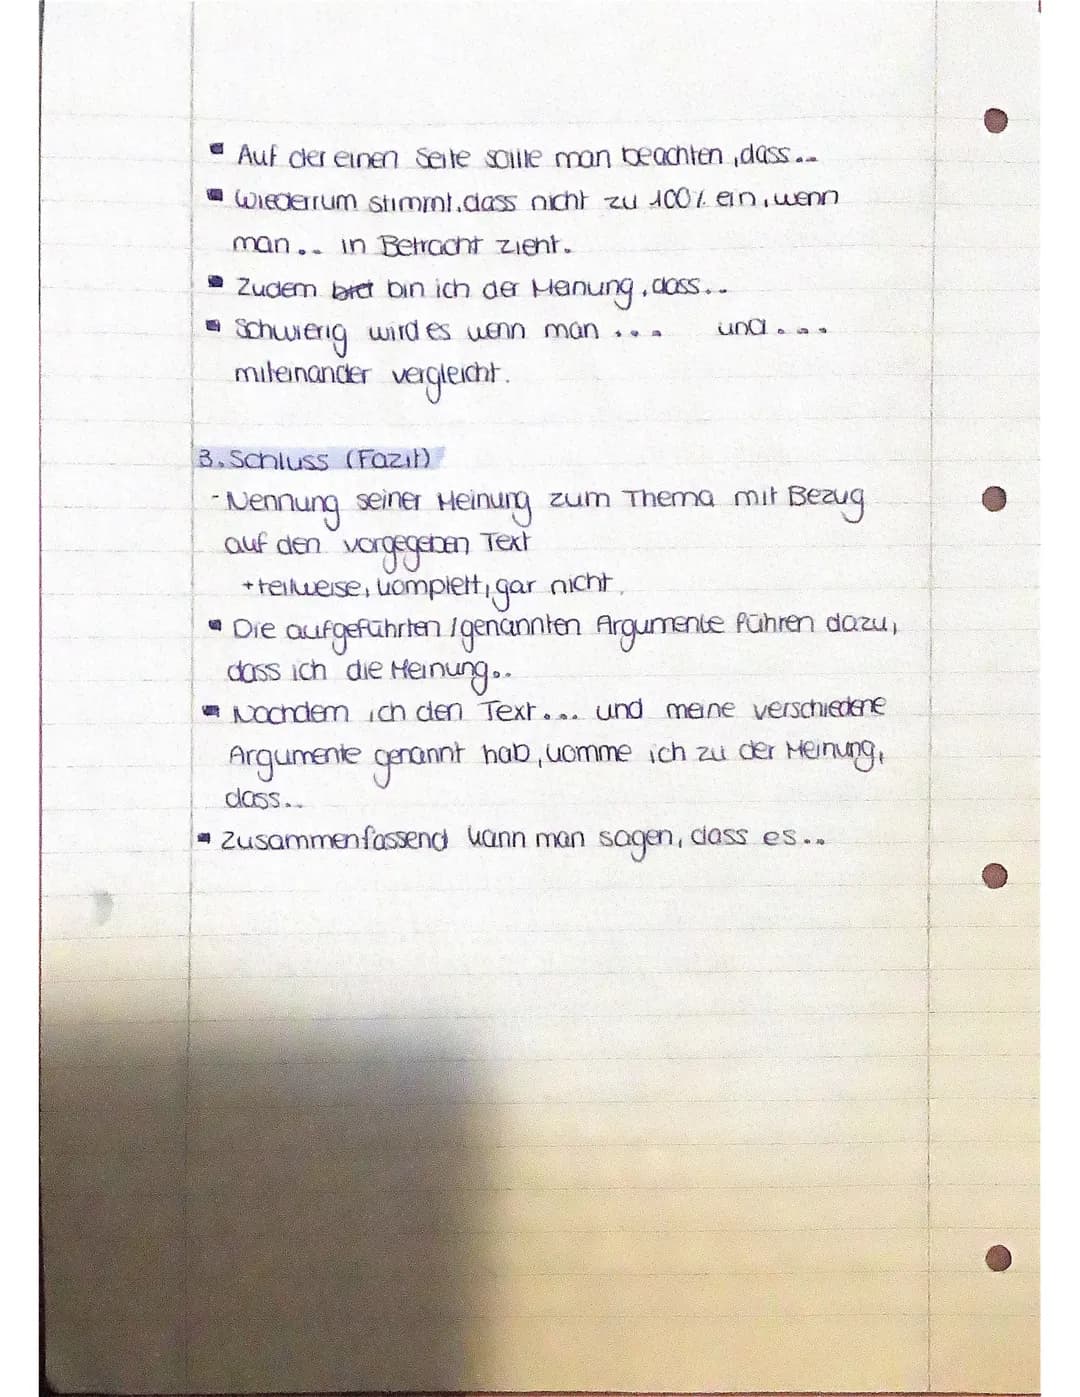 ▪ Auf der einen Seite sollte man beachten, dass...
▪ Wiederrum stimmt, dass nicht zu 100% ein, wenn
man... in Betracht zieht.
▪ Zudem bin ich der Meinung, dass...
▪ Schwierig wird es wenn man ... und ...
miteinander vergleicht.
3. Schluss (Fazit)
- Nennung seiner Meinung zum Thema mit Bezug
auf den vorgegeben Text
+ teilweise, komplett, gar nicht.
▪ Die aufgeführten / genannten Argumente führen dazu,
dass ich die Meinung...
▪ Nachdem ich den Text... und meine verschiedene
Argumente genannt hab, komme ich zu der Meinung,
dass...
▪ Zusammenfassend kann man sagen, dass es...